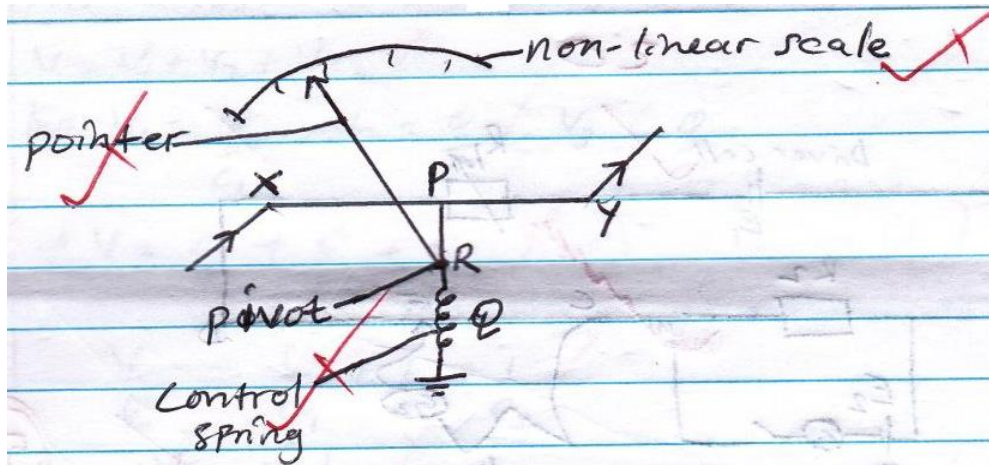 non-linear scale
pointer
P
X
Y
R
pivot
Q
Control
spring